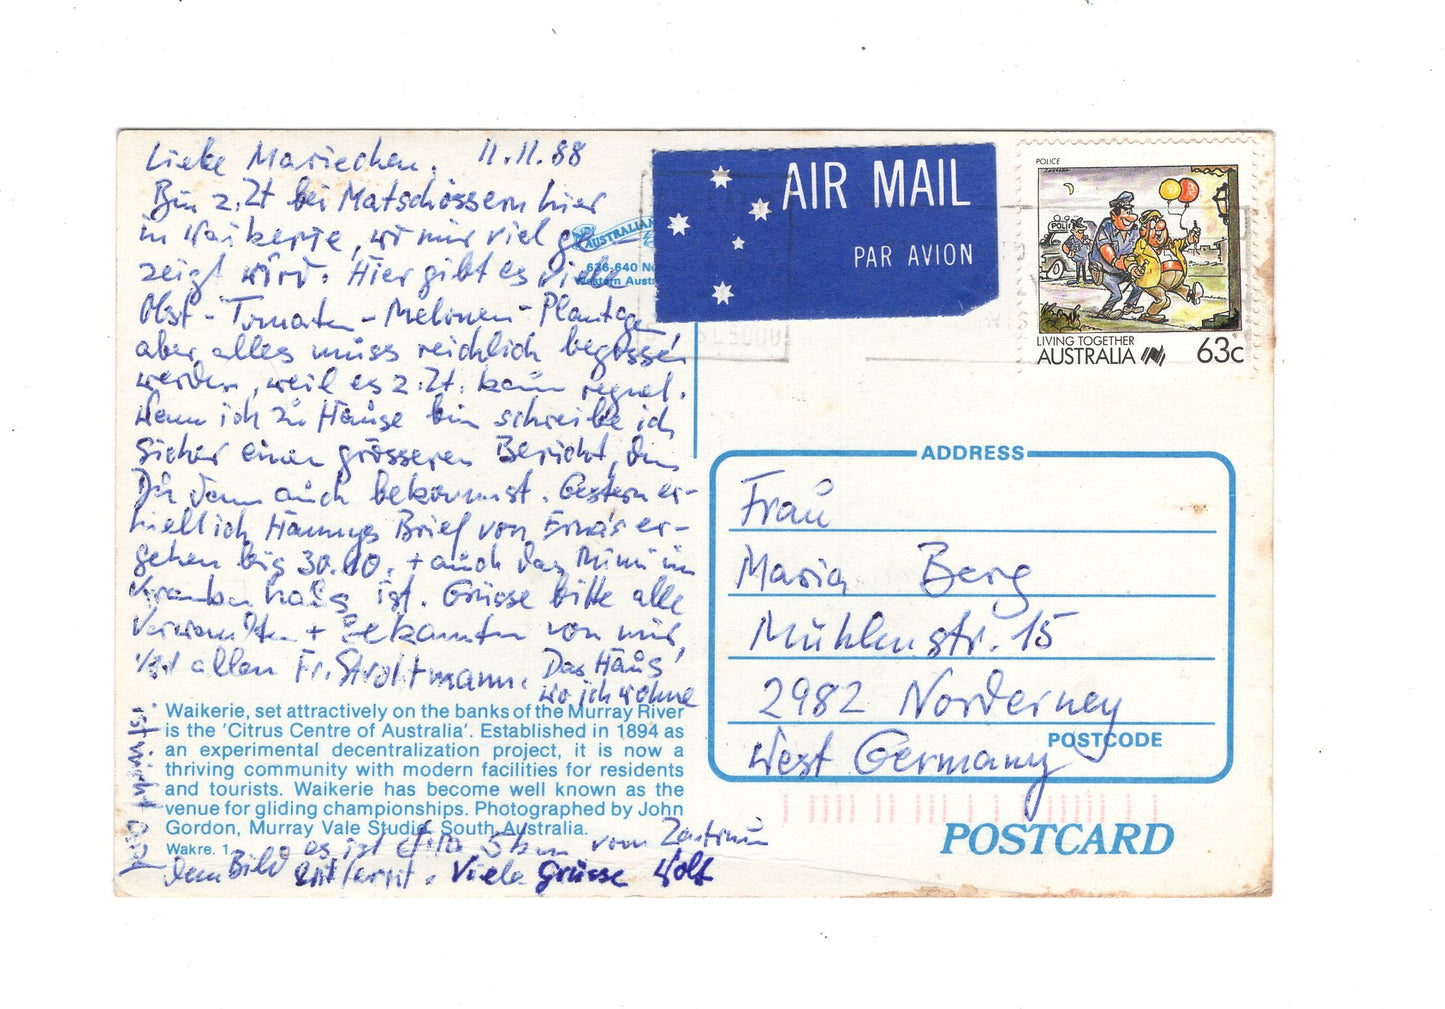 Lieke Mariechen, 11.11.88
Bin z.Zt bei Matschossern hier
in Waikerie, wo mir viel ge-
zeigt wird. Hier gibt es viele
Obst-Tomaten-Melonen-Plantagen
aber alles muss reichlich begossen
werden, weil es z.Zt. kaum regnet.
Wenn ich zu Hause bin schreibe ich
sicher einen grösseren Bericht, den
Du dann auch bekommst. Gestern er-
hielt ich Hannys Brief von Erna's er-
gehen bis 30.10. + auch das Mimi im
Krankenhaus ist. Grüsse bitte alle
Verwandten + Bekannten von mir,
allen Fr. Stroltmann. Das Haus
wo ich wohne
ist nicht auf
dem Bild es ist etwa 5km vom Zentrum
entfernt. Viele Grüsse Wolf
AUSTRALIAN
636-640
Western
Waikerie, set attractively on the banks of the Murray River
is the 'Citrus Centre of Australia'. Established in 1894 as
an experimental decentralization project, it is now a
thriving community with modern facilities for residents
and tourists. Waikerie has become well known as the
venue for gliding championships. Photographed by John
Gordon, Murray Vale Studio, South Australia.
Wakre. 1.
AIR MAIL
PAR AVION
POLICE
POLICE
LIVING TOGETHER
AUSTRALIA 63c
ADDRESS
Frau
Maria Berg
Mühlenstr. 15
2982 Norderney
POSTCODE
West Germany
POSTCARD